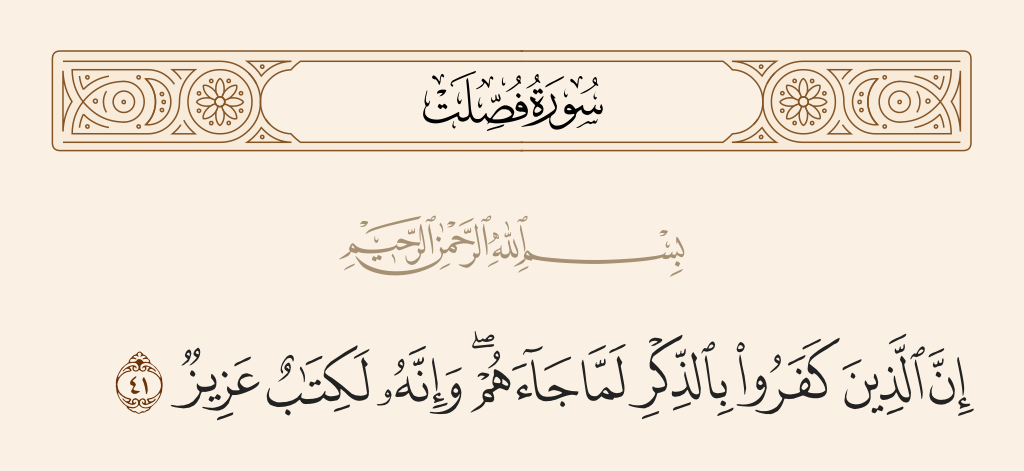 سُورَةُ فُصِّلَتْ
بِسْمِ ٱللَّهِ ٱلرَّحْمَٰنِ ٱلرَّحِيمِ
إِنَّ ٱلَّذِينَ كَفَرُوا۟ بِٱلذِّكْرِ لَمَّا جَآءَهُمْ ۖ وَإِنَّهُۥ لَكِتَٰبٌ عَزِيزٌ ٤١